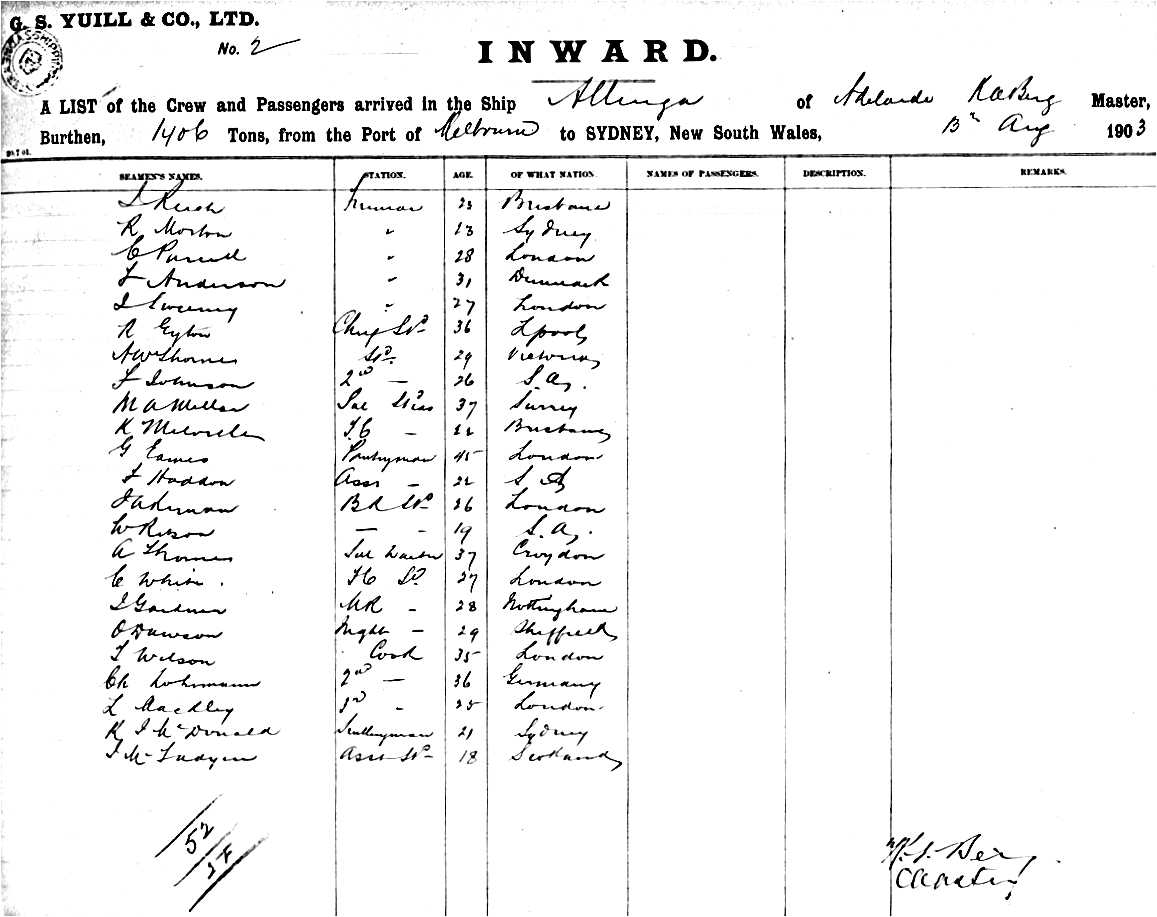 G. S. YUILL & CO., LTD.
No. 2
INWARD.
A LIST of the Crew and Passengers arrived in the Ship Altinga of Adelaide K A Berg Master,
Burthen, 1406 Tons, from the Port of Melbourne to SYDNEY, New South Wales, 13th Aug 1903
SEAMEN'S NAMES. STATION. AGE. OF WHAT NATION. NAMES OF PASSENGERS. DESCRIPTION. REMARKS.
Fireman 23 Brisbane
R Morton " 23 Sydney
C " 28 London
F Anderson " 31 Denmark
J Sweeney " 27 London
R Eyton Chief Std 36 Lpool
A W Thomes Std 29 Victoria
F Johnson 2nd — 26 S.A.
M A Millar Sal Stess 37 Surrey
K F.C — 22 Brisbane
G Eames Pantryman 45 London
F Haddon Asst — 22 S A
B R Std 26 London
W — - 19 S.A.
A Thomas Sal Waiter 37 Croydon
C White. F C Std 27 London
J Gardner M R - 28 Nottingham
O Dawson Night — 29 Sheffield
T Wilson Cook 35 London
Ch Lohmann 2nd — 36 Germany
L 3rd - 25 London
K J McDonald Sculleryman 21 Sydney
J McFadyen Asst Std 18 Scotland
52
Berg